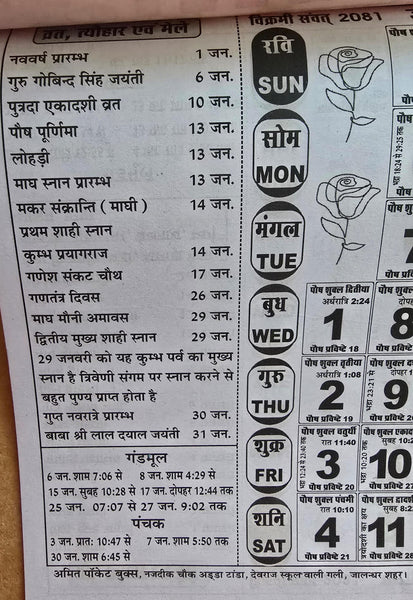 व्रत, त्योहार एवं मेले
नववर्ष प्रारम्भ 1 जन.
गुरु गोबिन्द सिंह जयंती 6 जन.
पुत्रदा एकादशी व्रत 10 जन.
पौष पूर्णिमा 13 जन.
लोहड़ी 13 जन.
माघ स्नान प्रारम्भ 13 जन.
मकर संक्रान्ति ( माघी ) 14 जन.
प्रथम शाही स्नान
कुम्भ प्रयागराज 14 जन.
गणेश संकट चौथ 17 जन.
गणतंत्र दिवस 26 जन.
माघ मौनी अमावस 29 जन.
द्वितीय मुख्य शाही स्नान 29 जन.
29 जनवरी को यह कुम्भ पर्व का मुख्य
स्नान है त्रिवेणी संगम पर स्नान करने से
बहुत पुण्य प्राप्त होता है
गुप्त नवरात्रे प्रारम्भ 30 जन.
बाबा श्री लाल दयाल जयंती 31 जन.
गंडमूल
6 जन. शाम 7:06 से 8 जन. शाम 4:29 से
15 जन. सुबह 10:28 से 17 जन. दोपहर 12:44 तक
25 जन. 07:07 से 27 जन. 9:02 तक
पंचक
3 जन. प्रात: 10:47 से 7 जन. 5:50 तक
30 जन. 6:45 से
विक्रमी संवत् 2081
रवि
SUN
सोम
MON
भद्रा 18:24 से 29:25 तक
मंगल
TUE
बुध
WED
पौष शुक्ल द्वितीया
अर्धरात्रि 2:24
1
पौष प्रविष्टे 18
8
गुरु
THU
पौष शुक्ल तृतीया
अर्धरात्रि 1:08
2
पौष प्रविष्टे 19
9
शुक्र
FRI
पौष शुक्ल चतुर्थी
रात 11:40
3
पौष प्रविष्टे 20
10
शनि
SAT
पौष शुक्ल पंचमी
रात 10:10
4
पौष प्रविष्टे 21
11
अमित पॉकेट बुक्स, नजदीक चौक अड्डा टांडा, देवराज स्कूल वाली गली, जालन्धर शहर।